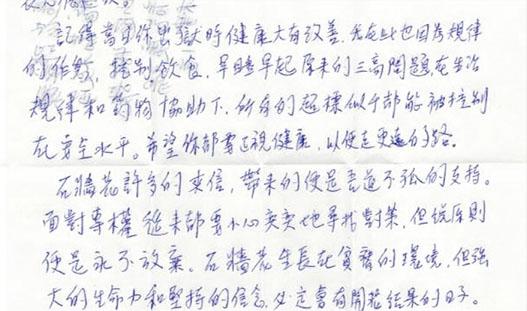 記得當日你出獄時健康大有改善,先在此也因為規律
的作息,控制飲食,早睡早起原來的三高問題,在生活
規律和葯物協助下,所有的超標似乎都能被控制
在安全水平。希望你都要正視健康,以便走更遠的路。
石牆花許多的來信,帶來的便是吾道不孤的支持。
面對專權 從來都要小心奕奕地尋找對策,但說原則
便是永不放棄。石牆花生長在貧瘠的環境,但強
大的生命力和堅持的信念,必定會有開花結果的日子。